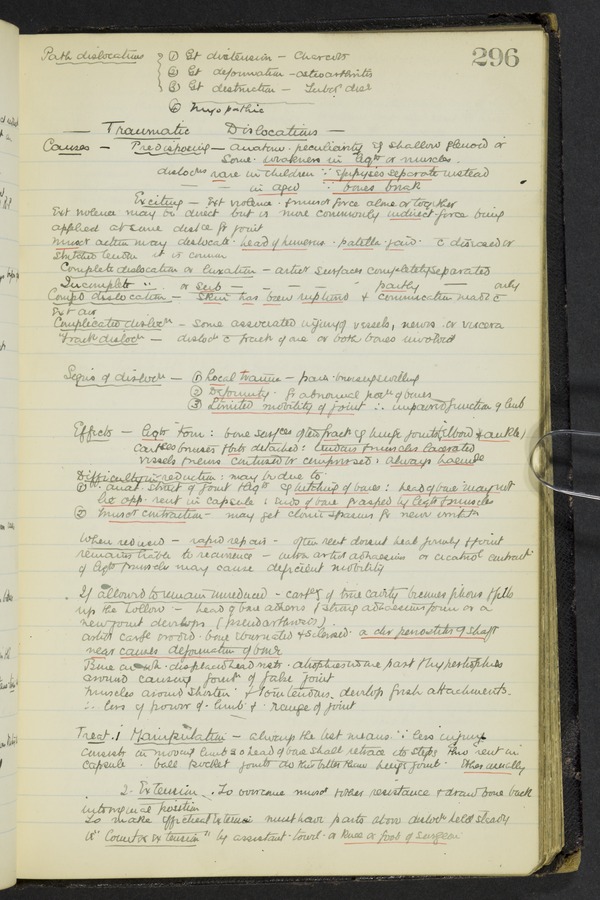 296
Path dislocations ① Gt distension - Charcots
② Gt deformation - osteoarthritis
③ Gt destruction - Tubcr disc
④ Myopathic
— Traumatic Dislocations —
Causes - Predisposing - anatom. peculiarity eg shallow glenoid or
Some weakness in ligts or muscles.
dislocns rare in children ∵ Epiphyses separate instead
— in aged ∵ bones break
Exciting - Ext violence & muscr force alone or together
Ext violence may be direct but is more commonly indirect force being
applied at some distce fr joint
Muscr action may dislocate head of humerus. patella. jaw. c diseased or
stretched tendon it is common
Complete dislocation or luxation - articr surfaces completely separated
Incomplete " or Sub — — — — partly — only
Compd dislocation - Skin has been ruptured & communication made c
Ext air
Complicated dislocn - Some associated injury of vessels, nerves or viscera
Fractr dislocn - dislocn c fractr of one or both bones involved
Signs of dislocn - ① Local trauma - pain bruising swelling
② Deformity fr abnormal posn of bones
③ Limited mobility of joint ∴ impaired function of limb
Effects - Ligts torn: bone surfces often fractd eg hinge joints (Elbow & ankle)
cartges bruised & bits detached: tendons & muscles lacerated
vessels & nerves contused or compressed: always haemge
Difficulty in reduction: may be due to
① anat. struct of joint & ligts eg hitching of bones: head of bone may not
be opp. rent in capsule: ends of bone grasped by ligts & muscles
② muscr contraction - may get clonic spasms fr nerve irritatn
When reduced - rapid repair - often rent doesnt heal firmly & joint
remains liable to recurrence - intra articr adhesions or cicatricl contractn
of ligts & muscles may cause deficient mobility
If allowed to remain unreduced - cartge of true cavity becomes fibrous & fills
up the hollow - head of bone atrophies & strong adhesions form or a
new joint develops (pseudarthrosis)
articr cartge eroded. bone eburnated & sclerosed. a chr periostitis of shaft
near causes deformation of bone
Bone on wh. displaced head rests. atrophies in one part & hypertrophies
around causing formtn of false joint
muscles around shorten & torn tendons develop fresh attachments
∴ loss of power of limb & range of joint
Treat. 1 Manipulation - always the best means ∵ less injury
consists in moving limb so head of bone shall retrace its steps thro rent in
capsule. ball & socket joints do this better than hinge joint. Ether usually
2. Extension. To overcome muscr & other resistance & draw bone back
into original position
To make efficient extensn must have parts above dislocn held steady
ie "Counter extension" by assistant. towel. or knee or foot of surgeon